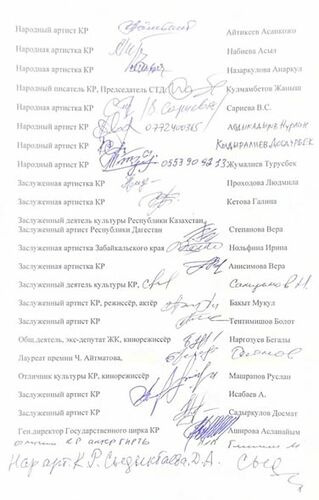 Народный артист КР Айтикеев Асанкожо
Народная артистка КР Набиева Асыл
Народная артистка КР Назаркулова Анаркул
Народный писатель КР, Председатель СТД Кулмамбетов Жаныш
Народная артистка КР В. Сариева Сариева В.С.
Народный артист КР 0772400365 Абдыкадыров Нурлан
Народный артист КР Кыдыралиев Догдурбек
Народный артист КР 0553 90 98 13 Жумалиев Турусбек
Заслуженная артистка КР Проходова Людмила
Заслуженная артистка КР Кетова Галина
Заслуженный деятель культуры Республики Казахстан,
Заслуженный артист Республики Дагестан Степанова Вера
Заслуженная артистка Забайкальского края Нольфина Ирина
Заслуженная артистка КР Анисимова Вера
Заслуженный деятель культуры КР,
Заслуженный артист КР, режиссёр, актёр Бакыт Мукул
Заслуженный артист КР Тентимишов Болот
Общ.деятель, экс-депутат ЖК, кинорежиссёр Наргозуев Бегалы
Лауреат премии Ч. Айтматова,
Отличник культуры КР, кинорежиссёр Машрапов Руслан
Заслуженный артист КР Исабаев А.
Заслуженный артист КР Садыркулов Досмат
Ген.директор Государственного цирка КР Аширова Асланайым
КР
Нар арт. К.Р. Сыдыктаева Д.А.